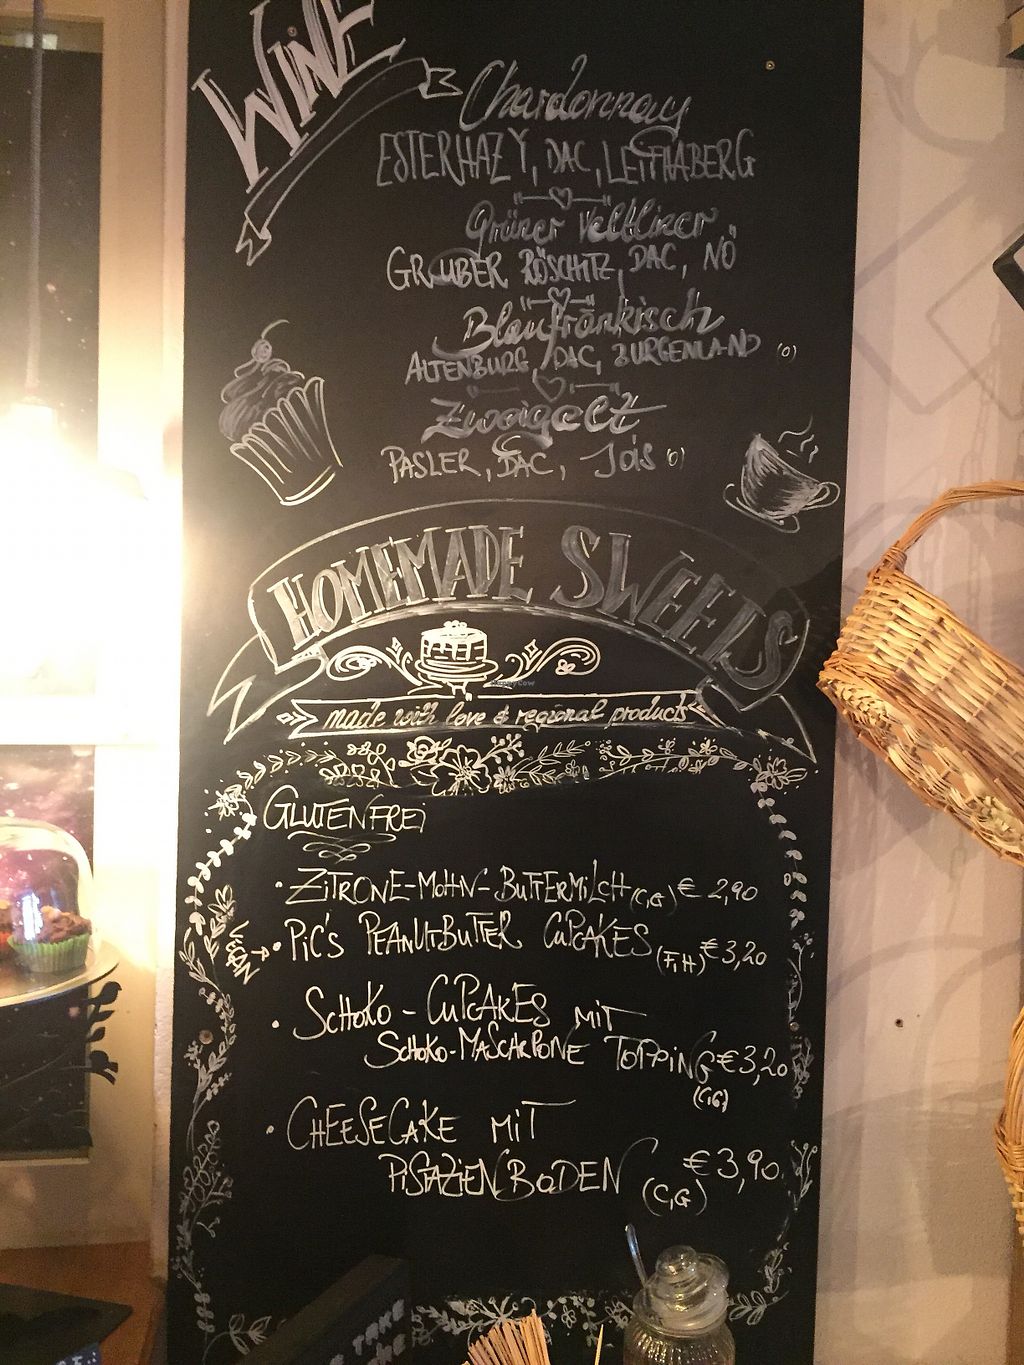 WINE
Chardonnay
ESTERHAZY, DAC, LEITHABERG
Grüner Veltliner
GRUBER RÖSCHITZ, DAC, NÖ
Blaufränkisch
ALTENBURG, DAC, BURGENLAND (0)
Zweigelt
PASLER, DAC, Jois (0)
HOMEMADE SWEETS
made with love & regional products
GLUTENFREI
• ZITRONE-MOHN-BUTTERMILCH (C,G) € 2,90
VEGAN • PIC'S PEANUTBUTTER CUPCAKES (F,H) € 3,20
• SCHOKO-CUPCAKES MIT
SCHOKO-MASCARPONE TOPPING € 3,20
(C,G)
• CHEESECAKE MIT
PISTAZIENBODEN (C,G) € 3,90
TAKE